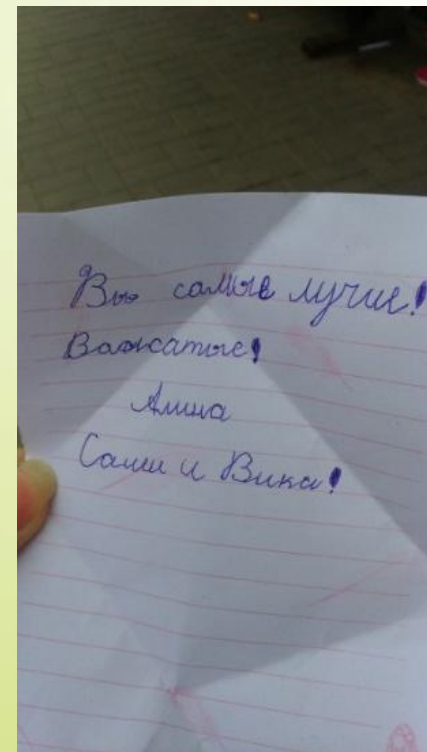 Вы самые лучие!
Важатые!
Алина
Саши и Вика!